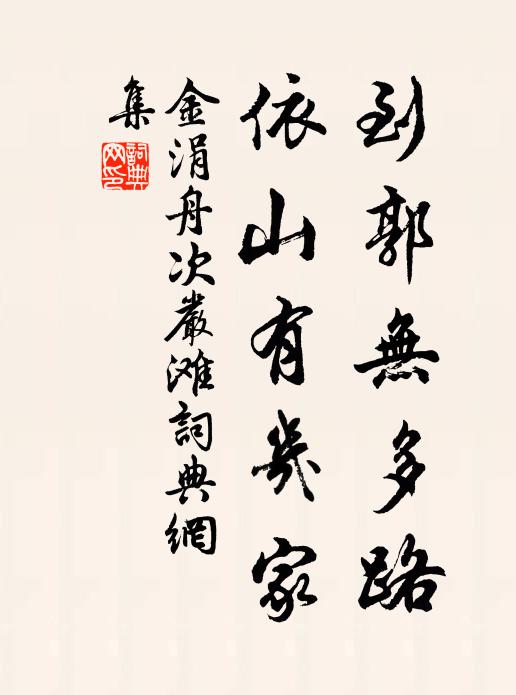 到郭無多路
依山有幾家
金涓舟次嚴滩詞典網
集
詞典網印